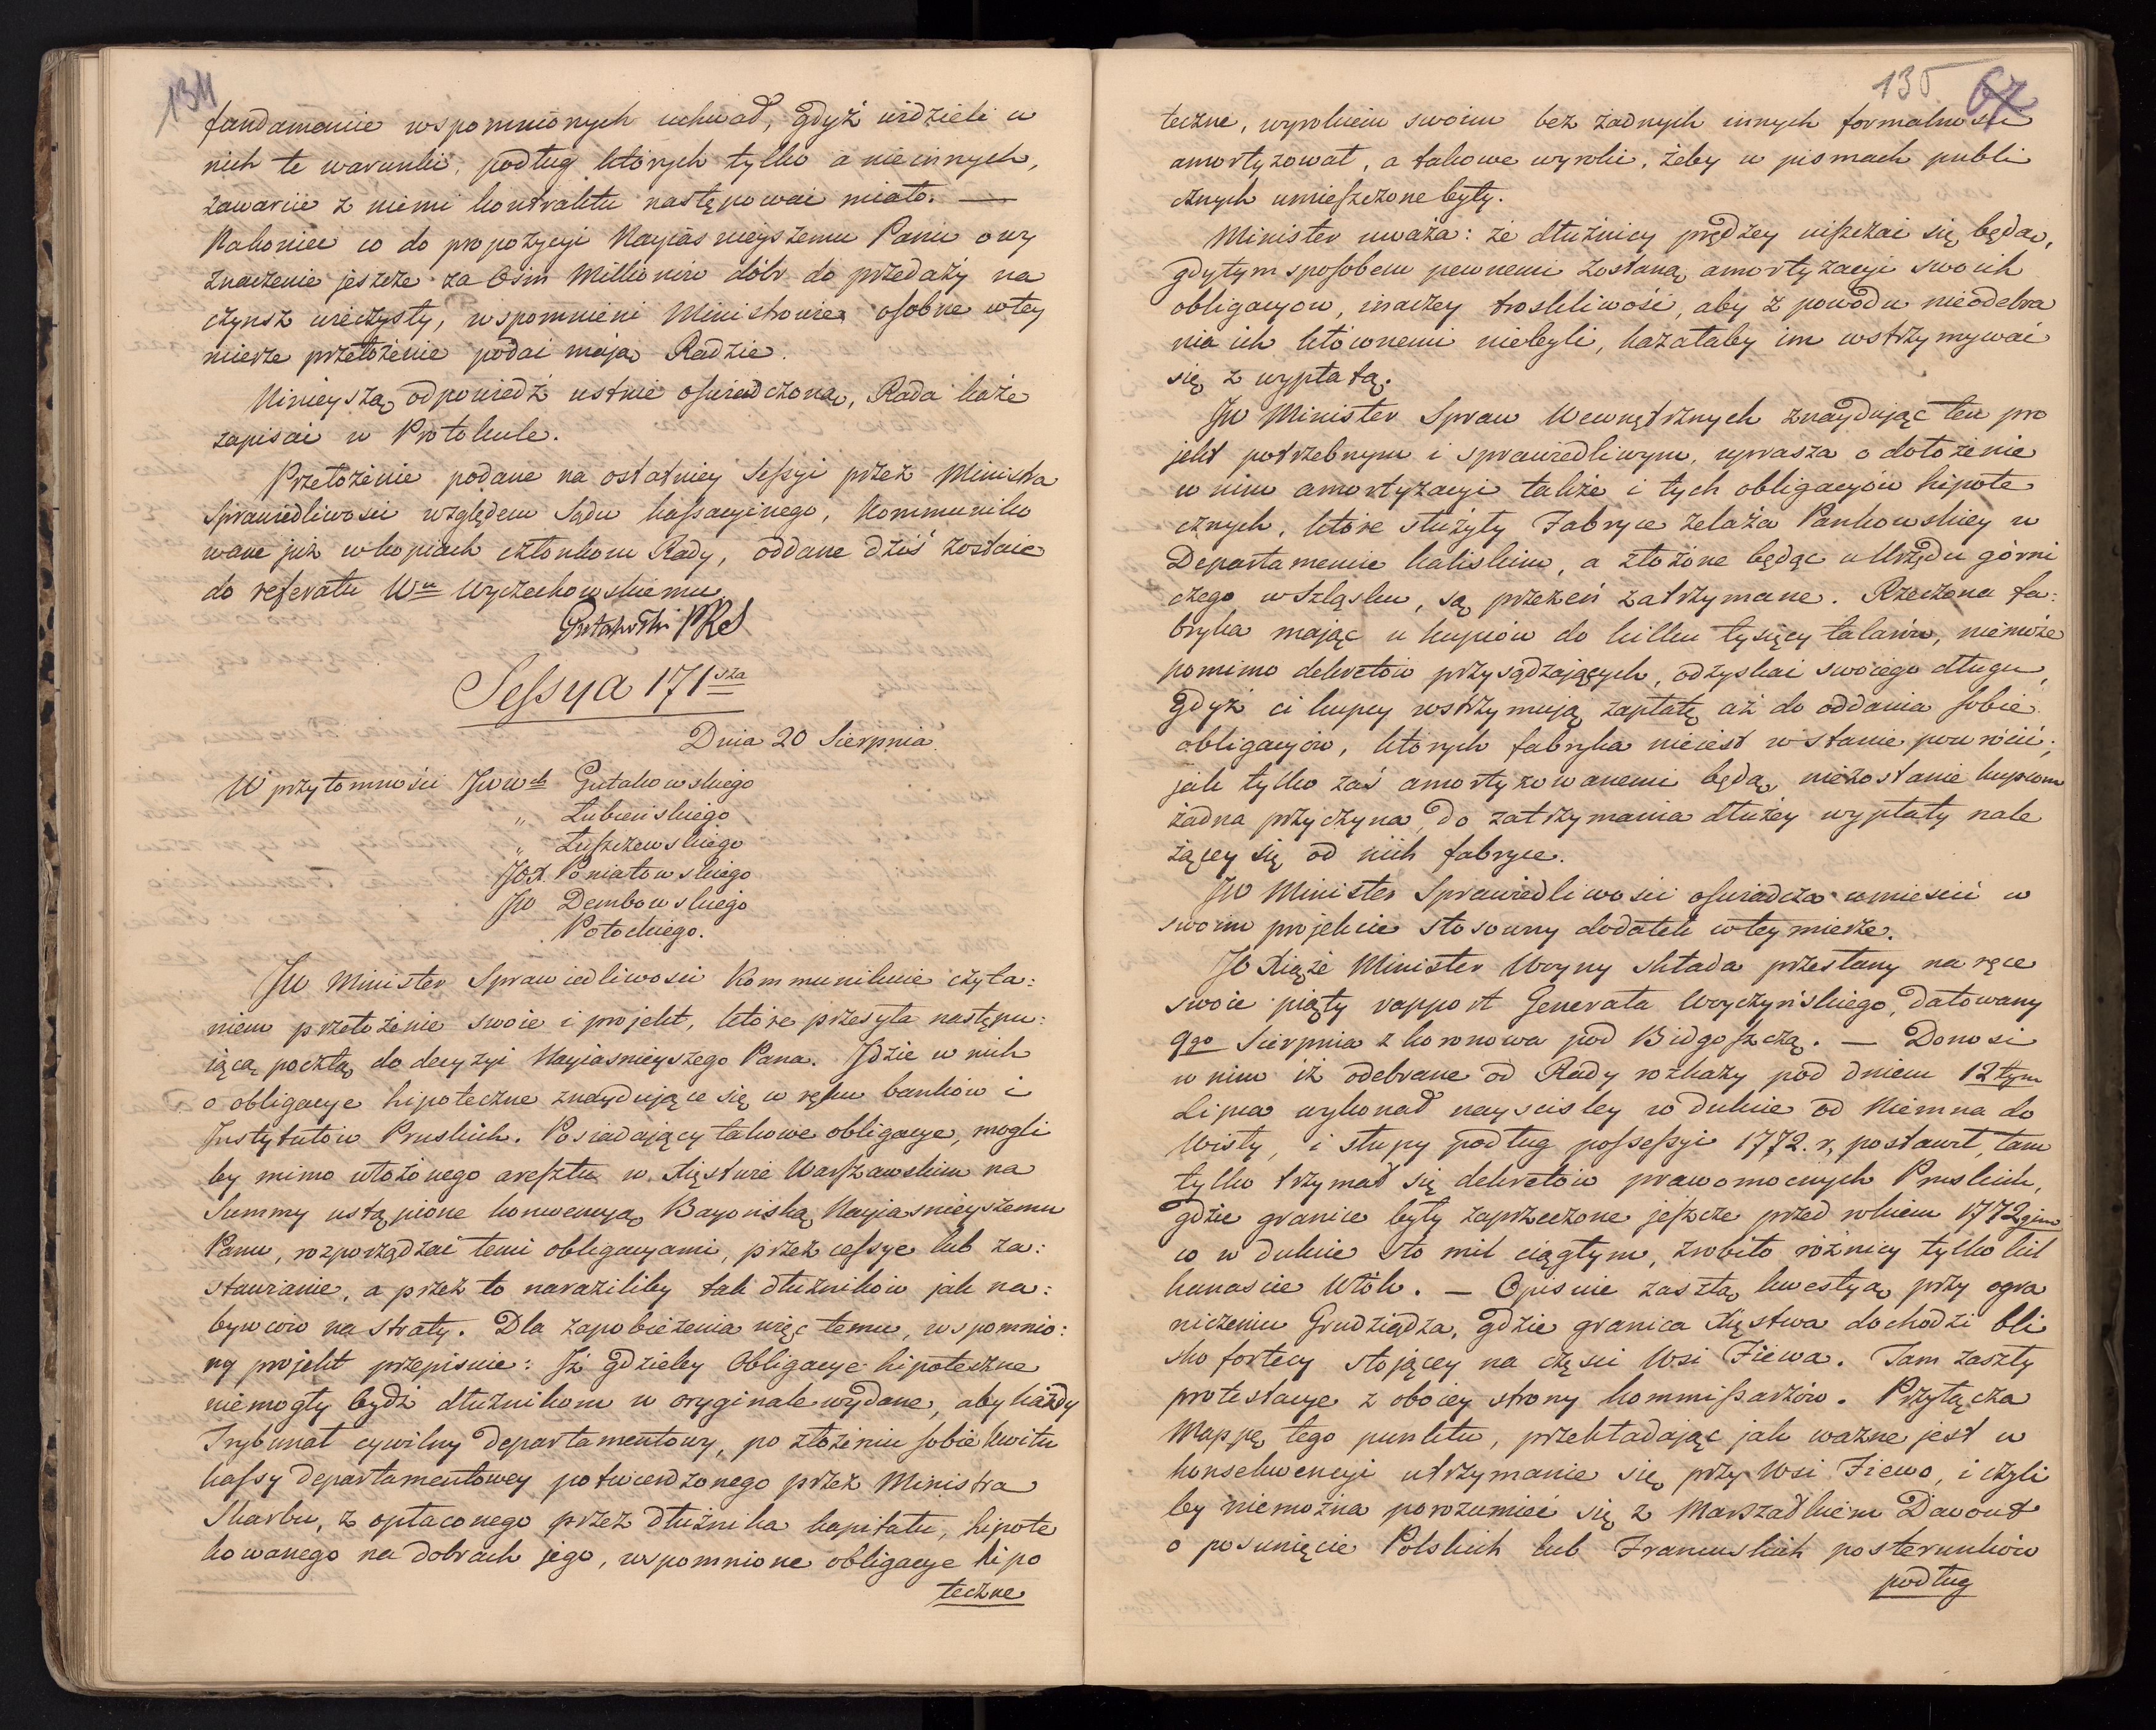 134
fundamencie wspomnionych uchwał, gdyż widzieli w
nich te warunki, podług których tylko a nie innych,
zawarcie z niemi kontraktu następować miało. —
Nakoniec co do propozycyi Nayiaśnieyszemu Panu o wy
znaczenie jeszcze za Ośm Millionów dóbr do przedaży na
czynsz wieczysty, wspomnieni Ministrowie osobne wtey
mierze przełożenie podać mają Radzie.
Ninieyszą odpowiedź ustnie oświadczoną, Rada każe
zapisać w Protokule.
Przełożenie podane na ostatniey Sessyi przez Ministra
Sprawiedliwości względem Sądu kassacyinego, Kommuniko
wane już w kopiach członkom Rady, oddane dziś zostaie
do referatu Wu Wyczechowskiemu
Gutakowski PRS
Sessya 171sza
Dnia 20 Sierpnia.
W przytomności JWWch Gutakowskiego
" Łubieńskiego
" Łuszczewskiego
JOX. Poniatowskiego
JW Dembowskiego
Potockiego.
JW Minister Sprawiedliwości Kommunikuie czyta:
niem przełożenie swoie i projekt, które przesyła następu:
iącą pocztą do decyzyi Nayiaśnieyszego Pana. Idzie w nich
o obligacye hipoteczne znaydujące się w ręku banków i
Instytutów Pruskich. Posiadający takowe obligacye, mogli
by mimo włożonego aresztu w Xięstwie Warszawskim na
Summy ustąpione konwencyą Bayońską Nayjaśnieyszemu
Panu, rozporządzać temi obligacyami, przez cessye lub za:
stawianie, a przez to naraziliby tak dłużników jak na:
bywców na straty. Dla zapobieżenia więc temu, wspomnio:
ny projekt przepisuie: Iż gdzieby Obligacye hipoteczne
niemogły bydź dłużnikom w oryginale wydane, aby każdy
Trybunał cywilny departamentowy, po złożeniu sobie kwitu
kassy departamentowey potwierdzonego przez Ministra
Skarbu, z opłaconego przez dłużnika kapitału, hipote
kowanego na dobrach jego, wspomnione obligacye hipo
teczne
135 67
teczne, wyrokiem swoim bez żadnych innych formalności
amortyzował, a takowe wyroki, żeby w pismach publi
cznych umieszczone były.
Minister uważa: że dłużnicy prędzey uiszczać się będą,
gdy tym sposobem pewnemi zostaną amortyzacyi swoich
obligacyow, inaczey troskliwość, aby z powodu nieodebra
nia ich kłóconemi niebyli, kazałaby im wstrzymywać
się z wypłatą.
JW Minister Spraw Wewnętrznych znayduiąc ten pro
jekt potrzebnym i sprawiedliwym, uprasza o dołożenie
w nim amortyzacyi także i tych obligacyów hipote
cznych, które służyły Fabryce żelaza Pankowskiey w
Departamencie kaliskim, a złożone będąc u Urzędu górni
czego w Szląsku, są przezeń zatrzymane. Rzeczona fa:
bryka mając u kupców do kilku tysięcy talarów, niemoże
pomimo dekretów przysądzających, odzyskać swoiego długu,
gdyż ci kupcy wstrzymują zapłatę aż do oddania sobie
obligacyów, których fabryka nieiest w stanie powrócić;
jak tylko zaś amortyzowanemi będą, niezostanie kupcom
żadna przyczyna do zatrzymania dłużey wypłaty nale
żącey się od nich fabryce.
JW Minister Sprawiedliwości oświadcza umieścić w
swoim projekcie stosowny dodatek wtey mierze.
JO Xiąże Minister Woyny składa przesłany na ręce
swoie piąty rapport Generała Woyczyńskiego, datowany
9go Sierpnia z Koronowa pod Bidgoszczą. — Donosi
w nim iż odebrane od Rady rozkazy pod dniem 12tym
Lipca wykonał nayściśley w dukcie od Niemna do
Wisły, i słupy podług possessyi 1772. r, postawił, tam
tylko trzymał się dekretów prawomocnych Pruskich,
gdzie granice były zaprzeczone jeszcze przed rokiem 1772gim
co w dukcie sto mil ciągłym, zrobiło różnicy tylko kil
kunaście Włók. — Opisuie zaszłą kwestyą przy ogra
niczeniu Grudziądza, gdzie granica Xięstwa dochodzi bli
sko fortecy stojącey na części Wsi Fiewa. Tam zaszły
protestacye z oboiey strony kommissarzów. Przyłącza
Mappę tego punktu, przekładając jak ważne jest w
konsekwencyi utrzymanie się przy Wsi Fiewo, i czyli
by niemożna porozumieć się z Marszałkiem Davoust
o posunięcie Polskich lub Francuskich posterunków
podług